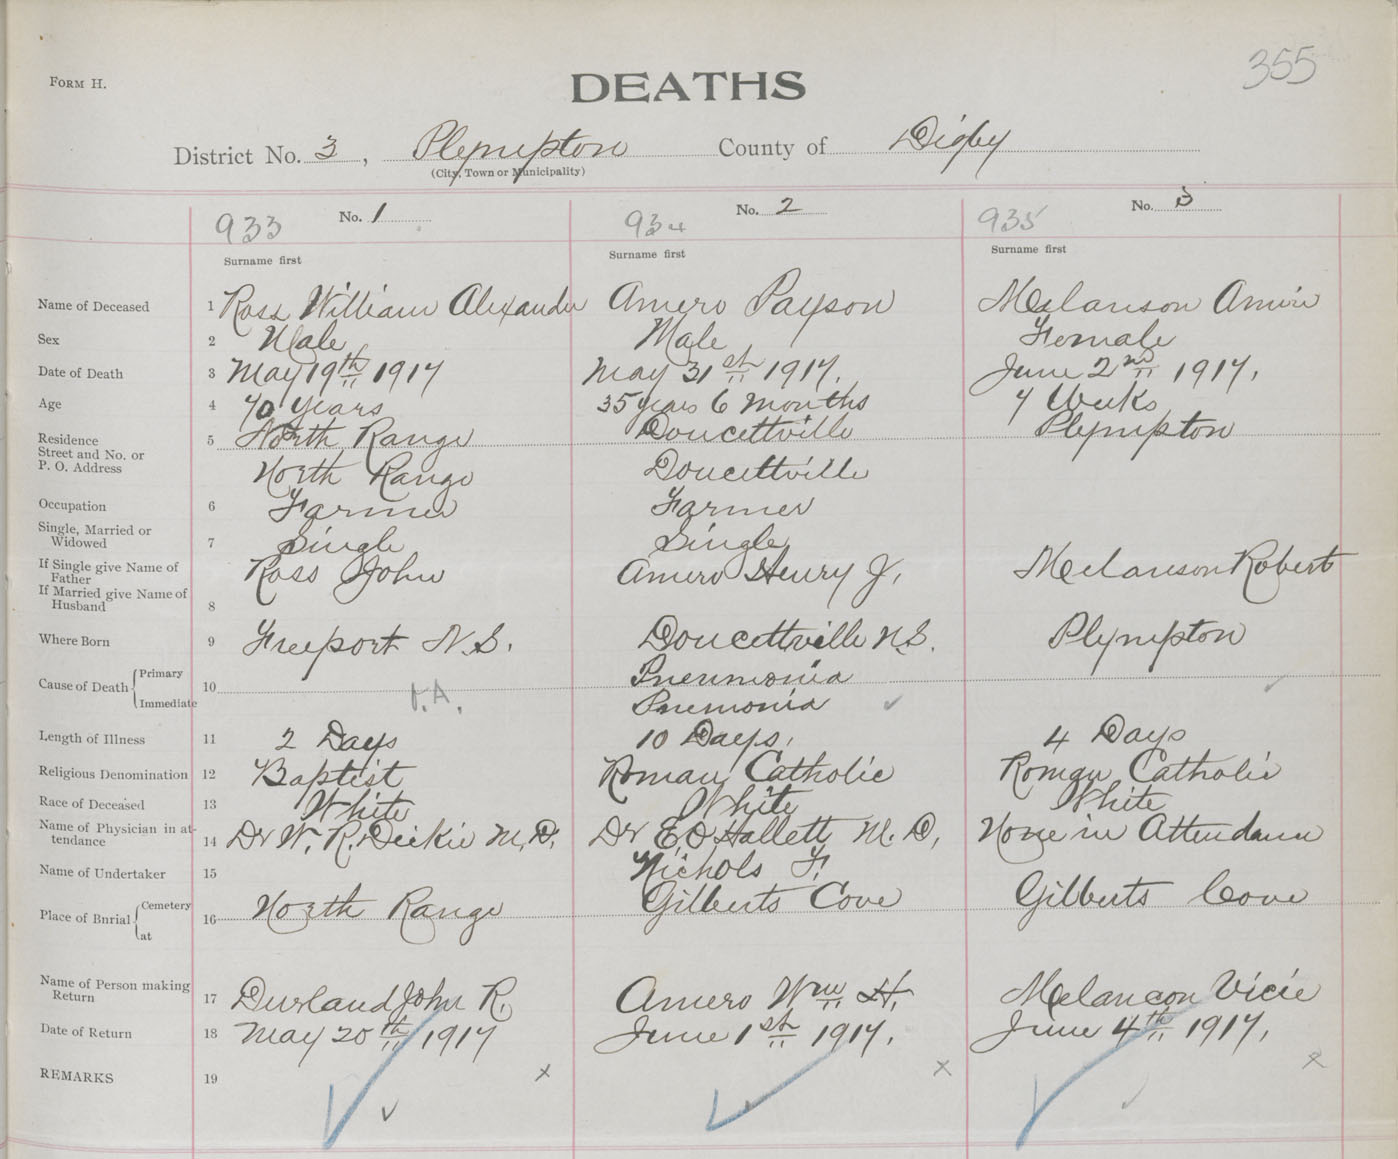 355
FORM H.
DEATHS
District No. 3, Plympton County of Digby
(City, Town or Municipality)
933 No. 1 934 No. 2 935 No. 3
Surname first Surname first Surname first
Name of Deceased 1 Ross William Alexander Amero Payson Melanson Annie
Sex 2 Male Male Female
Date of Death 3 May 19th 1917 May 31st 1917. June 2nd 1917.
Age 4 70 years 35 years 6 months 7 Weeks
Residence Street and No. or P. O. Address 5 North Range Doucettville Plympton
North Range Doucettville
Occupation 6 Farmer Farmer
Single, Married or Widowed 7 Single Single
If Single give Name of Father Ross John Amero Henry J. Melanson Robert
If Married give Name of Husband 8
Where Born 9 Freeport N.S. Doucettville N.S. Plympton
Cause of Death { Primary 10 Pneumonia
Immediate U.A. Pnemonia
Length of Illness 11 2 Days 10 Days, 4 Days
Religious Denomination 12 Baptist Roman Catholic Roman Catholic
Race of Deceased 13 White White White
Name of Physician in attendance 14 Dr W. R. Dickie M.D. Dr E. O Hallett M. D. None in Attendance
Name of Undertaker 15 Nichols F.
Place of Bnrial { Cemetery at 16 North Range Gilberts Cove Gilberts Cove
Name of Person making Return 17 Durland John R. Amero Wm H. Melancon Vicie
Date of Return 18 May 20th 1917 June 1st 1917. June 4th 1917.
REMARKS 19 x x x